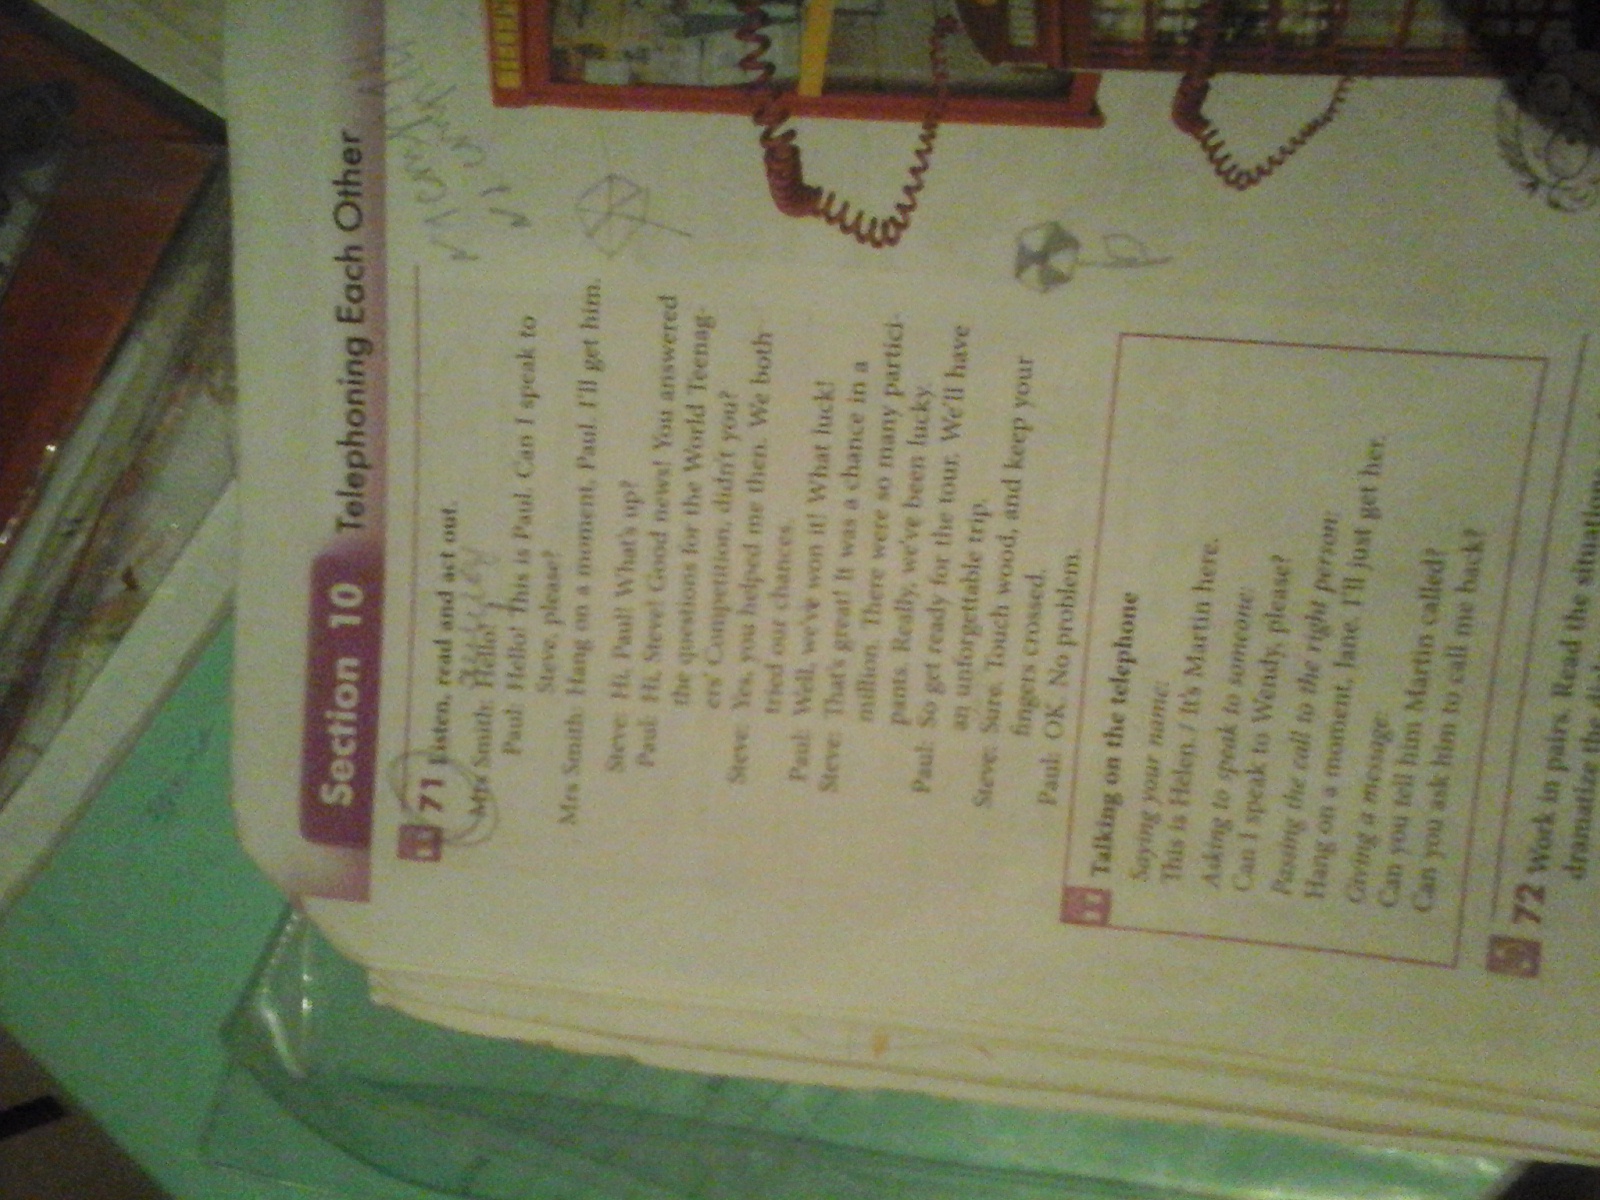 Section 10 Telephoning Each Other
71 Listen, read and act out.
Mrs Smith: Hello!
Paul: Hello! This is Paul. Can I speak to
Steve, please?
Mrs Smith: Hang on a moment, Paul. I'll get him.
Steve: Hi, Paul! What's up?
Paul: Hi, Steve! Good news! You answered
the questions for the World Teenag-
ers' Competition, didn't you?
Steve: Yes, you helped me then. We both
tried our chances.
Paul: Well, we've won it! What luck!
Steve: That's great! It was a chance in a
million. There were so many partici-
pants. Really, we've been lucky.
Paul: So get ready for the tour. We'll have
an unforgettable trip.
Steve: Sure. Touch wood, and keep your
fingers crossed.
Paul: OK. No problem.
Talking on the telephone
Saying your name:
This is Helen. / It's Martin here.
Asking to speak to someone:
Can I speak to Wendy, please?
Passing the call to the right person:
Hang on a moment, Jane. I'll just get her.
Giving a message:
Can you tell him Martin called?
Can you ask him to call me back?
72 Work in pairs. Read the situations
dramatize the